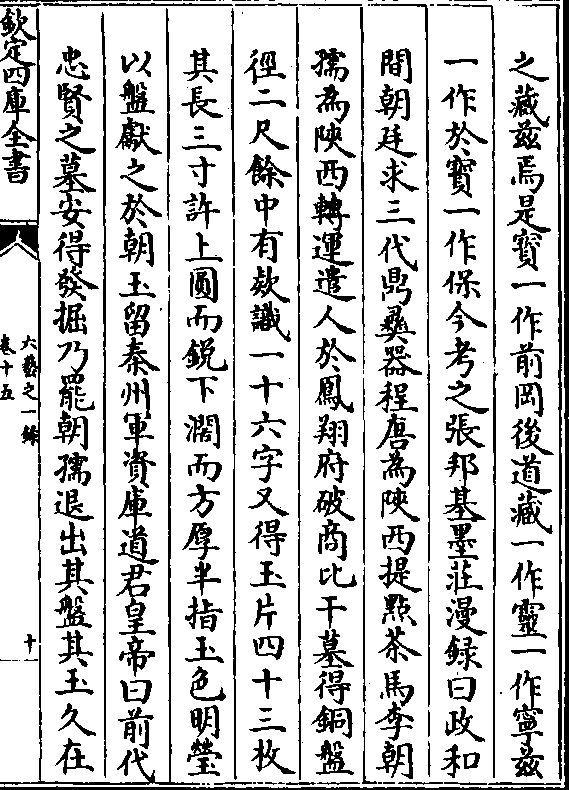 之藏茲焉是寳一作前岡後道藏一作靈一作寧茲
一作於寳一作保今考之張邦基墨莊漫録曰政和
間朝廷求三代鼎彝器程唐為陜西提㸃茶馬李朝
孺為陜西轉運遣人於鳳翔府破商比干墓得銅盤
徑二尺餘中有欵識一十六字又得玉片四十三枚
其長三寸許上圓而銳下濶而方厚半指玉色明瑩
以盤獻之於朝玉留秦州軍資庫道君皇帝曰前代
忠賢之墓安得發掘乃罷朝孺退出其盤其玉久在
欽定四庫全書
六藝之一録
卷十五
十